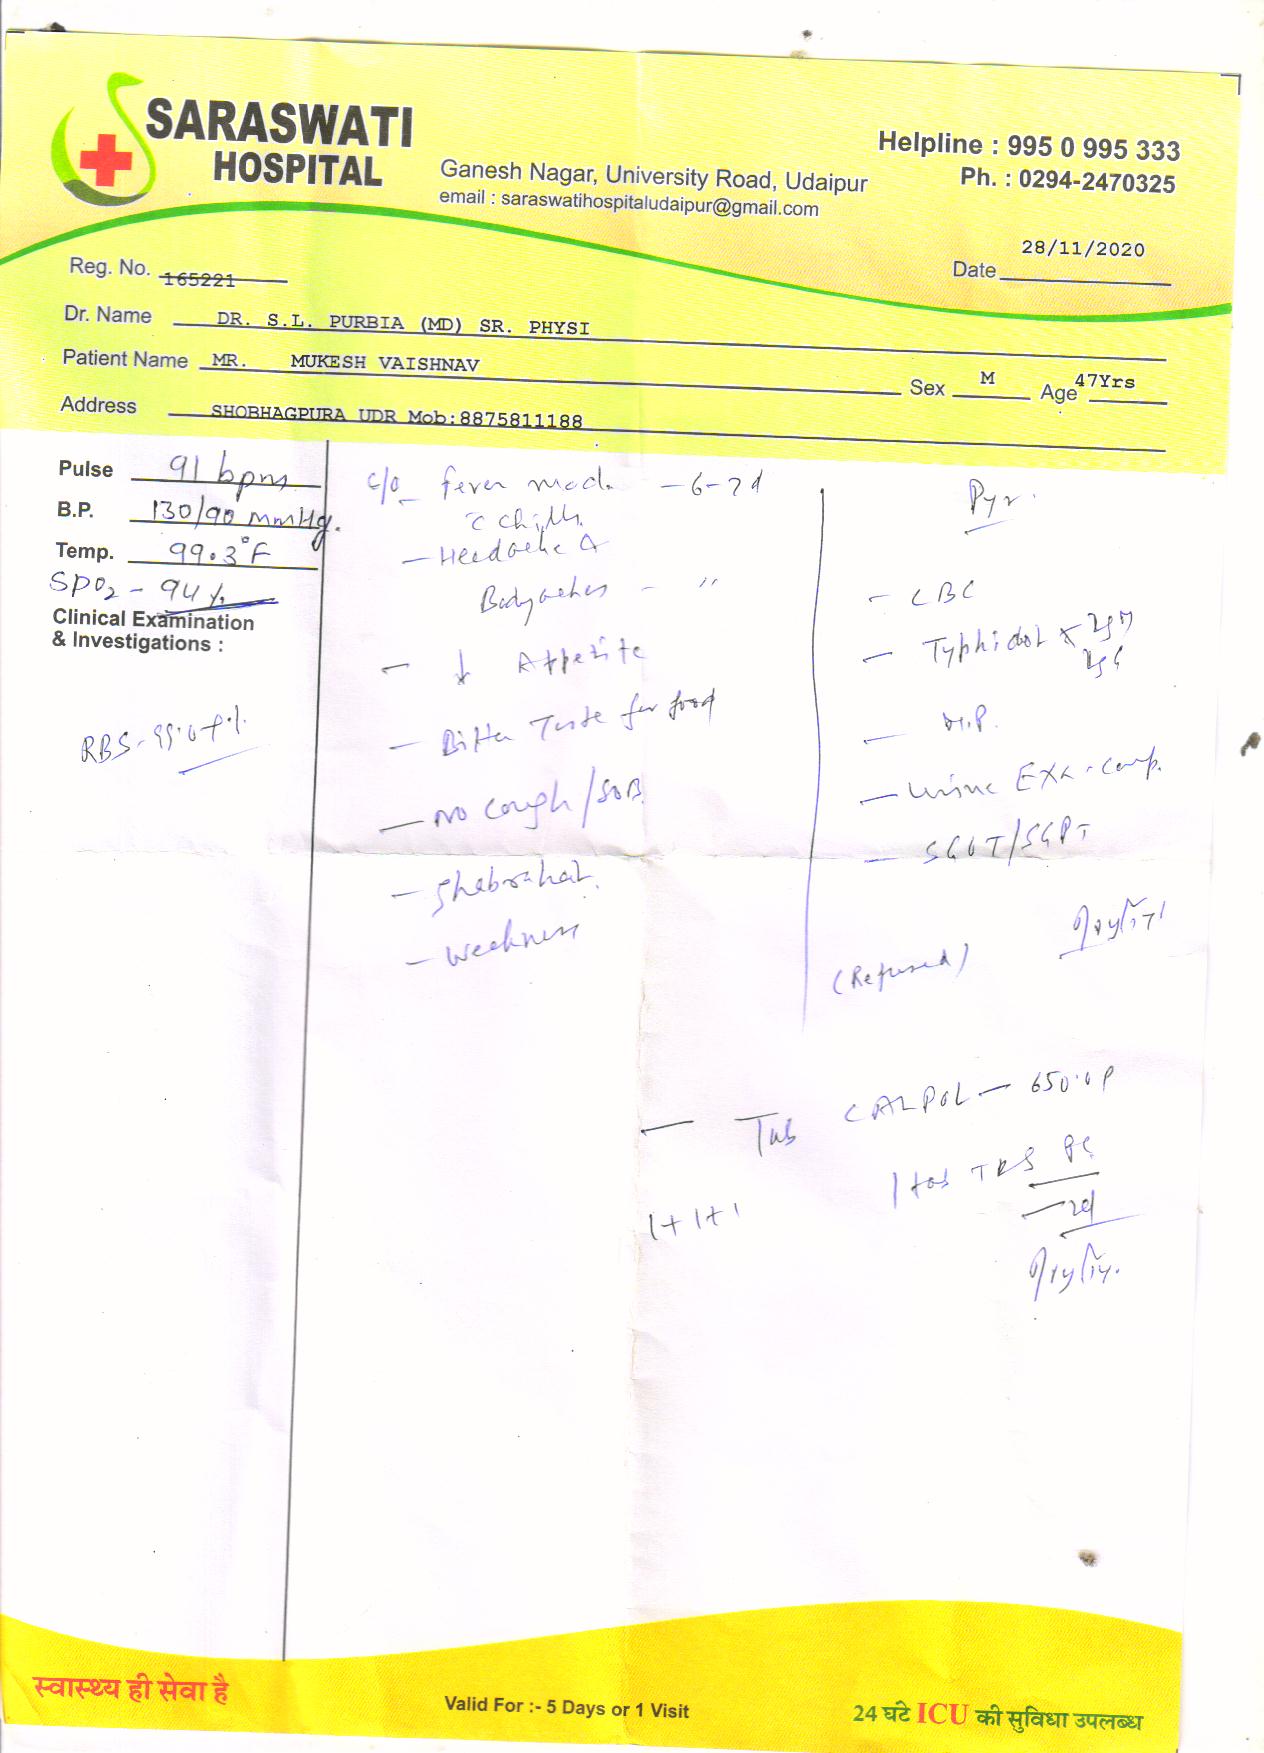 SARASWATI
HOSPITAL
Ganesh Nagar, University Road, Udaipur
email : saraswatihospitaludaipur@gmail.com
Helpline : 995 0 995 333
Ph. : 0294-2470325
28/11/2020
Date
Reg. No. 165221
Dr. Name DR. S.L. PURBIA (MD) SR. PHYSI
Patient Name MR. MUKESH VAISHNAV
Sex M Age 47Yrs
Address SHOBHAGPURA UDR Mob:8875811188
Pulse 91 bpm
B.P. 130/90 mmHg.
Temp. 99.3°F
SPO2 - 94%
Clinical Examination
& Investigations :
RBS -
c/o fever mod. - 6-7d
c chills
- Headache &
Bodyaches - "
- ↓ Appetite
- Bitter Taste for food
- No cough/SOB
- Ghabrahat
- Weakness
Pyr.
- CBC
- Typhidot
- M.P.
- Urine Exa. comp.
- SGOT/SGPT
(Refused)
- Tab CALPOL - 650
1 tab TDS PC
1+1+1
स्वास्थ्य ही सेवा है
Valid For :- 5 Days or 1 Visit
24 घंटे ICU की सुविधा उपलब्ध